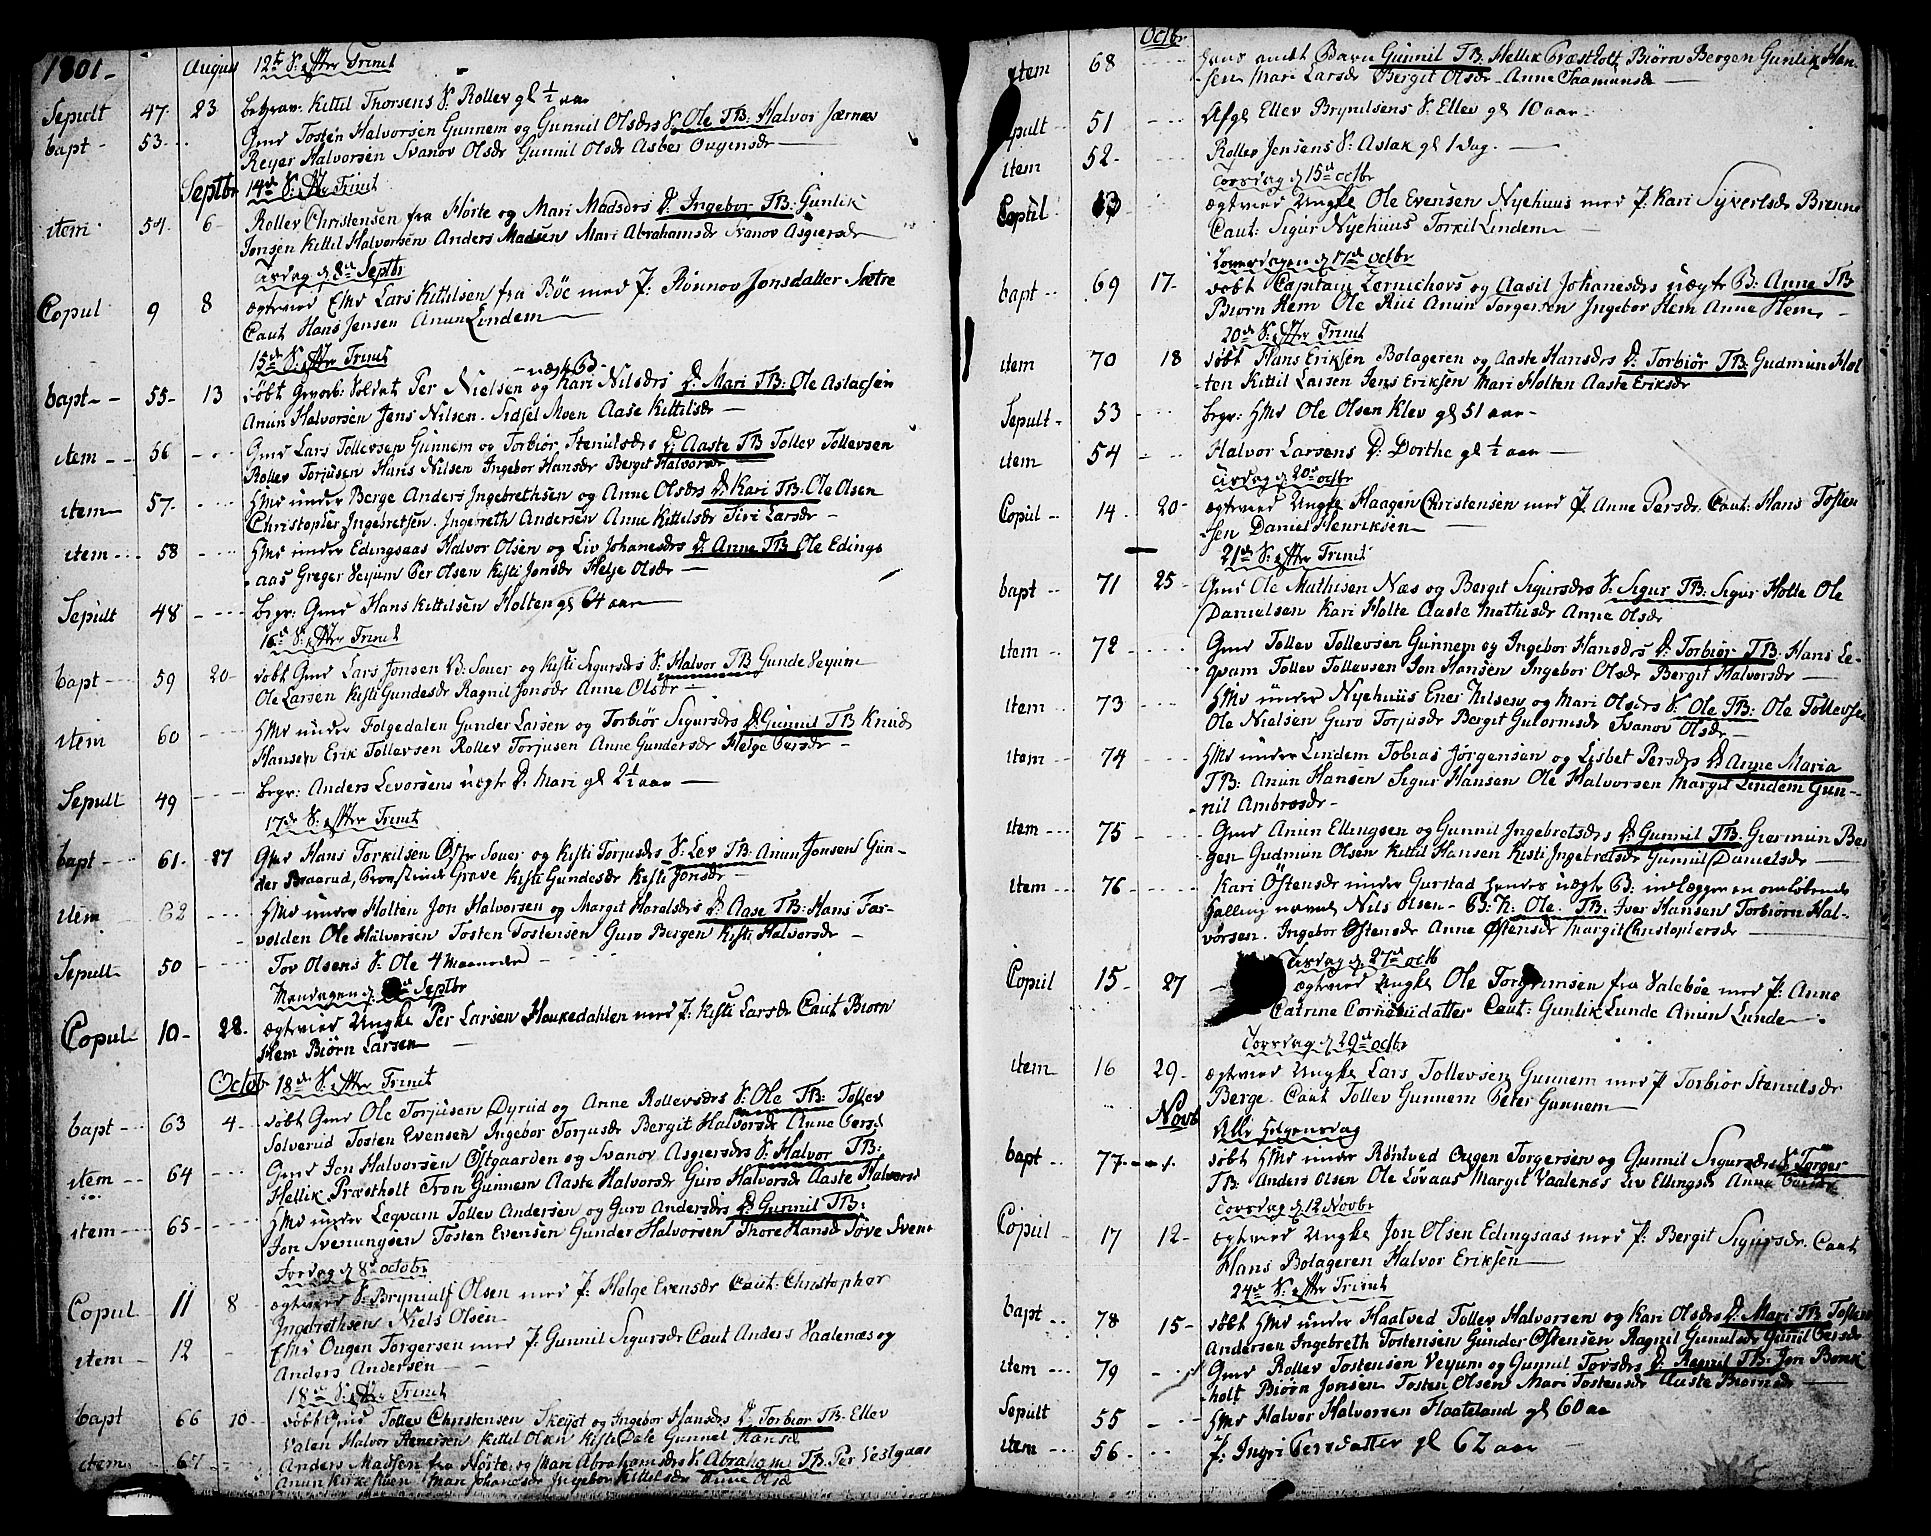 1801. August 12te S: efter Trinit
Sepult 47. 23 begrav: Kittil Thorsens S: Rollev gl ½ aar
bapt 53. Gmd Tosten Halvorsen Gunnem og Gunnil Olsdrs S. Ole TB: Halvor Jærnes
Reyer Halvorsen Svanov Olsdr Gunnil Olsdr Asber Ougensdr
Septbr 14de S: efter Trinit
item 54. 6 Rollev Christensen fra Hörte og Mari Madsdrs D. Ingebor TB: Gunlik
Jonsen Kittil Halvorsen Anders Madsen Mari Abrahamsdr Svanov Asgiersdr
Tirsdag d 8de Septbr
Copul 9 8 ægtevied EMd Lars Kittilsen fra Böe med P: Rönnov Jonsdatter Sætre
Caut Hans Jensen Anun Lindem
15de S: efter Trinit
uægte B:
bapt 55. 13 döbt Gevorb: Soldat Per Nielsen og Kari Nilsdrs D. Mari TB: Ole Aslacsen
Anun Halvorsen Jens Nilsen. Sidsel Moen Aase Kittilsdr
item 56 Gmd Lars Tollevsen Gunnem og Torbiör Stenulsdrs D. Aaste TB Tollev Tollevsen
Rollev Torjusen Hans Nilsen Ingebor Hansdr Bergit Halvorsdr
item 57. HMd under Berge Anders Ingebrethsen og Anne Olsdrs D. Kari TB: Ole Olsen
Christopher Ingebretsen. Ingebreth Andersen Anne Kittilsdr Siri Larsdr
item 58 HMd under Edingsaas Halvor Olsen og Liv Johanesdrs D. Anne TB Ole Edings
aas Greger Veyum Per Olsen Kisti Jonsdr Helje Olsdr
Sepult 48 begr: Gmd Hans Kittilsen Holten gl 64 aar
16de S: efter Trinit
bapt 59 20 döbt Gmd Lars Jonsen B: Souer og Kisti Sigursdrs S. Halvor TB Gunde Veyum
Ole Larsen Kisti Gundesdr Ragnil Jonsdr Anne Olsdr
item 60 HMd under Folgedalen Gunder Larsen og Torbiör Sigursdrs D. Gunnil TB Knud
Hansen Erik Tollevsen Rollev Torjusen Anne Gundersdr Helge Persdr
Sepult 49 begr: Anders Levorsens uægte D. Mari gl 2½ aar
17de S: efter Trinit
bapt 61. 27 Gmd Hans Torkilsen Östre Souer og Kisti Torjusdrs S. Lev TB: Anun Jonsens Gun-
der Braarud, Grave Kisti Gundesdr Kisti Jonsdr
item 62 HMd under Holten Jon Halvorsen og Margit Haralsdrs D. Aase TB: Hans Far-
volden Ole Halvorsen Tosten Tostensen Guro Bergen Kisti Halvorsdr
Sepult 50 Tov Olsens S: Ole 4 Maaneder
Mandagen d Septbr
Copul 10 28. ægteviet Ungke Per Larsen Haukedahlen med P: Kisti Larsdr Caut Biorn
Hem Biörn Larsen
Octobr 18de S: efter Trinit
bapt 63 4 döbt Gmd Ole Torjusen Dyrud og Anne Rollevsdrs S. Ole TB: Tollev
Solverud Tosten Evensen Ingebor Torjusdr Bergit Halvorsdr Anne Persd
item 64 Gmd Jon Halvorsen Östgaarden og Svanov Asgiersdrs S. Halvor TB:
Hellik Præstholt Tron Gunnem Aaste Halvorsdr Guro Halvorsdr Aaste Halvorsd
item 65 HMd under Legvam Tollev Andersen og Guro Andersdrs D. Gunnil TB:
Jon Svenungsen Tosten Evensen Gunder Halvorsen Thore Hansd Töve Svens
Torsdag d 8de octobr
Copul 11 8 ægteviet S: Brynulf Olsen med P: Helge Evensdr Caut: Christopher
Ingebrethsen Niels Olsen
item 12 EMd Ougen Torgersen med P. Gunnil Sigursdr Caut Anders Vaalenæs og
Anders Andersen
18de S: efter Trinit
bapt 66 10 döbt Gmd Tollev Christensen Skeyet og Ingebor Hansdrs D. Torbiör TB: Ellev
Valen Halvor Kittil Olsen Kisti Dale Gunnel Hansd
item 67 Anders Madsen fra Hörte og Mari Abrahamsdrs S. Abraham TB. Per Vestgaar
Anun Kirke Mari Johanesdr Ingebor Kittelsdr Anne Olsd
Octbr
item 68 Barn Gunnil TB: Hellik Præstholt Biörn Bergen Gunlik Han-
sen Mari Larsdr Bergit Olsdr Anne Saamundsdr
Sepult 51 Afgl Ellev Brynilsens S: Ellev gl 10 aar
item 52 Rollev Jensens S: Aslak gl 1 dag.
Torsdag d 15de octbr
Copul 13 ægteviet Ungke Ole Evensen Nyehuus med P: Kari Syvertsdr Brenne
Caut: Sigur Nyehuus Torkil Lindem
Löverdagen d 17de octbr
bapt 69 17 döbt Capitain Zernichovs og Aasil Johanesdrs uægte B: Anne TB
Biorn Hem Ole Rui Anun Torgersen Ingebor Hem Anne Hem
20de S: efter Trinit
item 70 18 döbt Hans Eriksen Bolageren og Aaste Hansdrs D: Torbiör TB: Gudmun Hol
ten Kittil Larsen Jens Eriksen Mari Holten Aaste Eriksdr
Sepult 53 begr: HMd Ole Olsen Klev gl 51 aar
item 54 Halvor Larsens D: Dorthe gl ½ aar
Tirsdag d 20de octbr
Copul 14. 20 ægteviet Ungke Haagen Christensen med P. Anne Persdr. Caut: Hans Tosten
sen Daniel Henriksen
21de S: efter Trinit
bapt 71 25 Gmd Ole Mathisen Næs og Bergit Sigursdrs S: Sigur TB: Sigur Holte Ole
Danielsen Kari Holte Aaste Mathisdr Anne Olsdr
item 72 Gmd Tollev Tollevsen Gunnem og Ingebor Hansdrs D. Torbiör TB: Hans Le-
gvam Tollev Tollevsen Jon Hansen Ingebor Olsdr Bergit Halvorsdr
item 73 HMd under Nyehuus Ener Nilsen og Mari Olsdrs S. Ole TB: Ole Tollevsen
Ole Nielsen Guro Torjusdr Bergit Gulormsdr Svanov Olsdr
item 74 HMd under Lindem Tobias Jörgensen og Lisbet Persdrs D. Anne Maria
TB: Anun Hansen Sigur Hansen Ole Halvorsen Margit Lindem Gun-
nil Ambrosdr
item 75 Gmd Anun Ellingsen og Gunnil Ingebretsdrs D: Gunnil TB: Giermun Ber
gen Gudmun Olsen Kittil Hansen Kisti Ingebretsdr Gunnil Danielsdr
item 76 Kari Östensdr under Gurstad hendes uægte B: udlægger en omlöbende
halling navnl Nils Olsen - B: N: Ole. TB: Iver Hansen Torbiörn Hal-
vorsen. Ingebor Östensdr Anne Östensdr Margit Christophersdr
Tirsdag d 27de octb
Copul 15 27 ægteviet Ungke Ole Torgrimsen fra Valeböe med P: Anne
Catrine Corneliidatter Caut: Gunlik Lunde Anun Lunde
Torsdag d 29de octbr
item 16 29 ægteviet Ungke Lars Tollevsen Gunnem med P Torbiör Stenulsdr
Berge. Caut Tollev Gunnem Peter Gunnem
Novb Alle helgensdag
bapt 77 1. döbt HMd under Röntved Ougen Torgersen og Gunnil Sigursdrs S. Torger
TB: Anders Olsen Ole Lövaas Margit Vaalenæs Liv Ellingsdr Anne
Torsdag d 12 Novbr
Copul 17 12 ægteviet Ungke Jon Olsen Edingsaas med P: Bergit Sigursdr. Caut
Hans Bolageren Halvor Eriksen
24de S: efter Trinit
bapt 78 15 döbt HMd under Haatved Tollev Halvorsen og Kari Olsdrs D. Mari TB Tosten
Andersen Ingebreth Tostensen Gunder Östensen Ragnil Gunulsdr Gunil Persdr
item 79 Gmd Rollev Tostensen Veyum og Gunnil Torsdrs D. Regnil TB: Jon Bonk
holt Biörn Jonsen Tosten Olsen Mari Tostensdr Aaste Biornsdr
Sepult 55 HMd Halvor Halvorsen Haateland gl 60 aa
item 56 P. Ingri Persdatter gl 62 aar